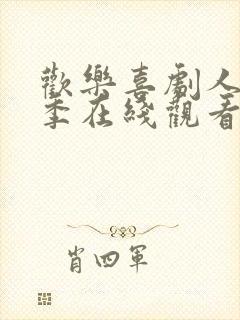 歡樂喜劇人
季在綫觀看
肖四軍